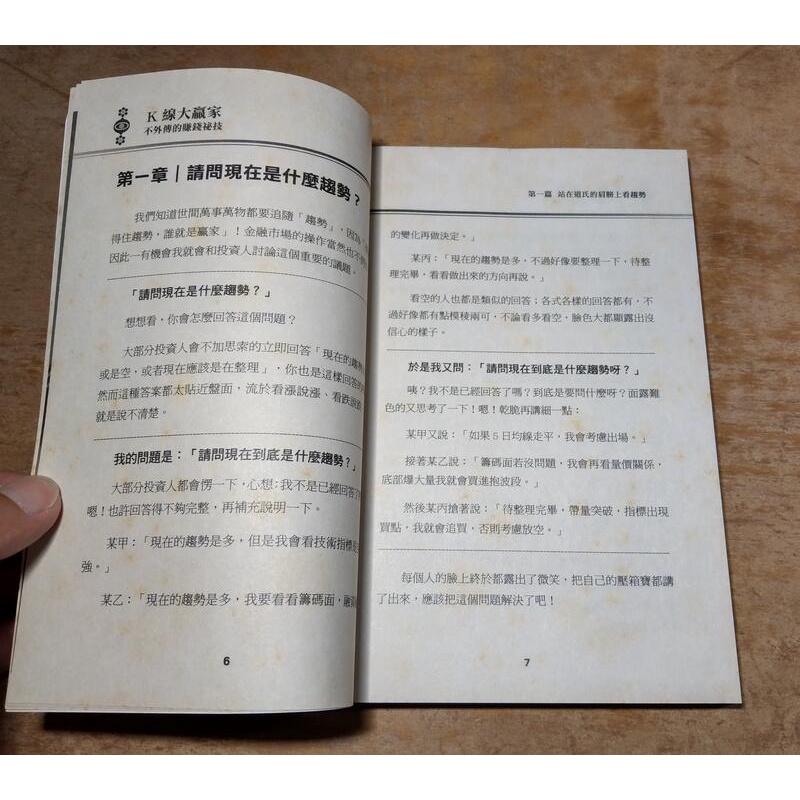 K 線大贏家
不外傳的賺錢祕技
第一章｜請問現在是什麼趨勢？
我們知道世間萬事萬物都要追隨「趨勢」，因為
得住趨勢，誰就是贏家」！金融市場的操作當然也不
因此一有機會我就會和投資人討論這個重要的議題。
「請問現在是什麼趨勢？」
想想看，你會怎麼回答這個問題？
大部分投資人會不加思索的立即回答「現在的趨勢
或是空，或者現在應該是在整理」，你也是這樣回答的
然而這種答案都太貼近盤面，流於看漲說漲、看跌說跌
就是說不清楚。
我的問題是：「請問現在到底是什麼趨勢？」
大部分投資人都會愣一下，心想：我不是已經回答了
嗯！也許回答得不夠完整，再補充說明一下。
某甲：「現在的趨勢是多，但是我會看技術指標
強。」
某乙：「現在的趨勢是多，我要看看籌碼面，融資
6
第一篇 站在道氏的肩膀上看趨勢
的變化再做決定。」
某丙：「現在的趨勢是多，不過好像要整理一下，待整
理完畢，看看做出來的方向再說。」
看空的人也都是類似的回答；各式各樣的回答都有，不
過好像都有點模稜兩可，不論看多看空，臉色大都顯露出沒
信心的樣子。
於是我又問：「請問現在到底是什麼趨勢呀？」
咦？我不是已經回答了嗎？到底是要問什麼呀？面露難
色的又思考了一下！嗯！乾脆再講細一點：
某甲又說：「如果 5 日均線走平，我會考慮出場。」
接著某乙說：「籌碼面若沒問題，我會再看量價關係，
底部爆大量我就會買進抱波段。」
然後某丙搶著說：「待整理完畢，帶量突破，指標出現
買點，我就會追買，否則考慮放空。」
每個人的臉上終於都露出了微笑，把自己的壓箱寶都講
了出來，應該把這個問題解決了吧！
7